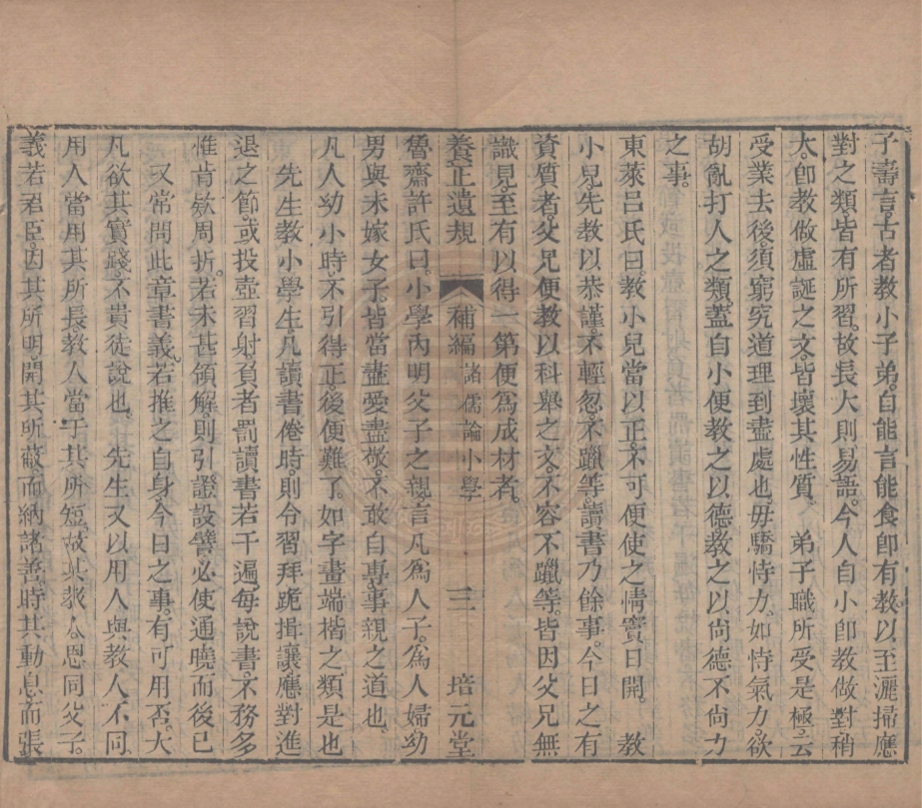 子壽言古者教小子弟。自能言能食卽有教。以至灑掃應
對之類。皆有所習。故長大則易語。今人自小卽教做對。稍
大。卽教做虛誕之文。皆壞其性質。　弟子職所受是極。云
受業去後。須窮究道理到盡處也。毋驕恃力。如恃氣力。欲
胡亂打人之類。蓋自小便教之以德。教之以尚德不尚力
之事。
東萊呂氏曰。教小兒當以正。不可便使之情竇日開。　教
小兒先教以恭謹。不輕忽。不躐等。讀書乃餘事。今日之有
資質者。父兄便教以科舉之文。不容不躐等。皆因父兄無
識見。至有以得一第便爲成材者。
養正遺規　補編 諸儒論小學　三　培元堂
魯齋許氏曰。小學內明父子之親。言凡爲人子。爲人婦。幼
男與未嫁女子。皆當盡愛盡敬。不敢自專。事親之道也。
凡人幼小時。不引得正。後便難了。如字畫端楷之類是也
先生教小學生。凡讀書倦時。則令習拜跪揖讓應對進
退之節。或投壺習射。負者罰讀書若干遍。每說書。不務多
惟肯欵周折。若未甚領解。則引證設譬。必使通曉而後已
又常問此章書義。若推之自身今日之事。有可用否。大
凡欲其實踐。不貴徒說也。　先生又以用人與教人不同
用人當用其所長。教人當于其所短。故其教人。恩同父子。
義若君臣。因其所明。開其所蔽。而納諸善。時其動息。而張